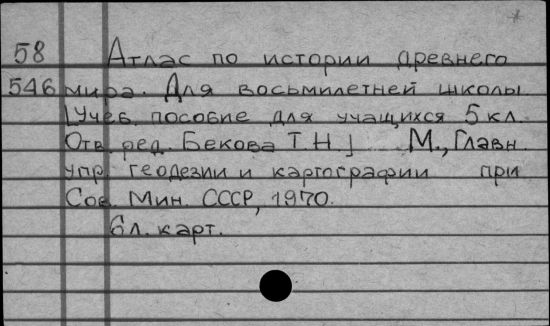 58 Атлас по истории древнего
546 мира. Для восьмилетней школы
[Учеб. пособие для учащихся 5 кл.
Отв. ред. Бекова Т.Н.] М., Главн.
упр. геодезии и картографии при
Сов. Мин. СССР, 1970.
6 л. карт.